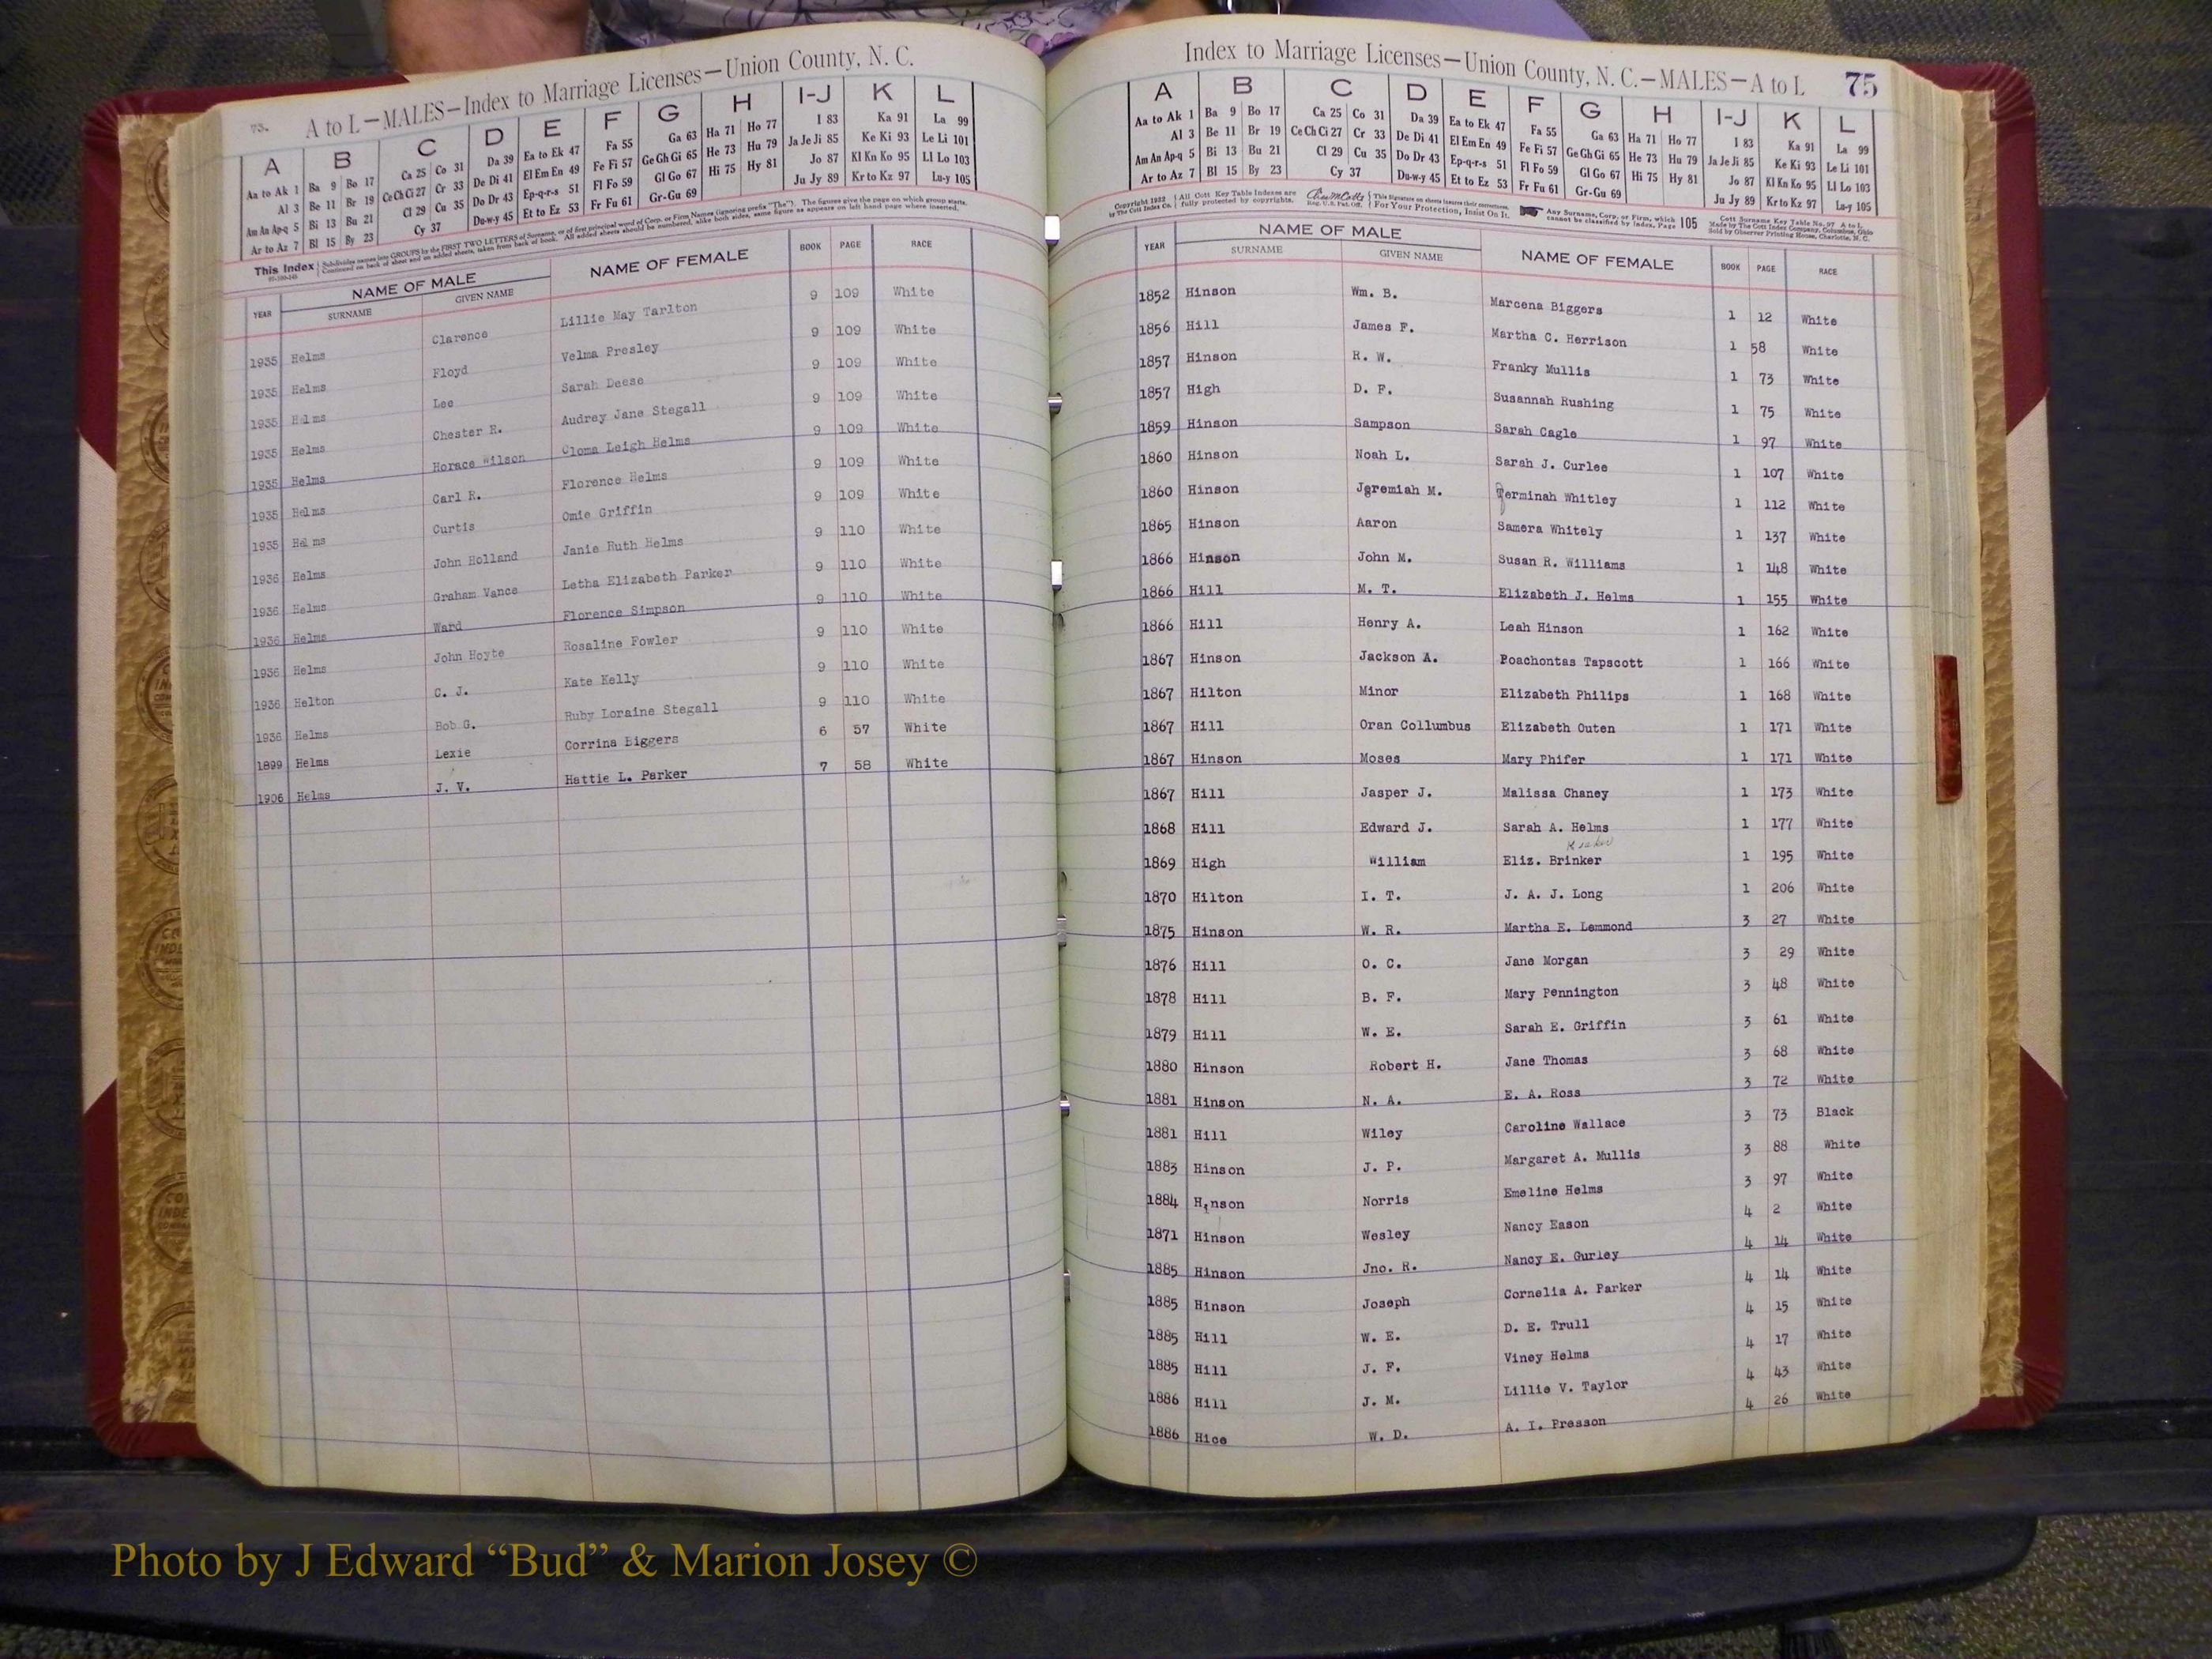 73. A to L—MALES—Index to Marriage Licenses—Union County, N. C.
A B C D E F G H I-J K L
Aa to Ak 1 Ba 9 Bo 17 Ca 25 Co 31 Da 39 Ea to Ek 47 Fa 55 Ga 63 Ha 71 Ho 77 I 83 Ka 91 La 99
Al 3 Be 11 Br 19 Ce Ch Ci 27 Cr 33 De Di 41 El Em En 49 Fe Fi 57 Ge Gh Gi 65 He 73 Hu 79 Ja Je Ji 85 Ke Ki 93 Le Li 101
Am An Ap-q 5 Bi 13 Bu 21 Cl 29 Cu 35 Do Dr 43 Ep-q-r-s 51 Fl Fo 59 Gl Go 67 Hi 75 Hy 81 Jo 87 Kl Kn Ko 95 Ll Lo 103
Ar to Az 7 Bl 15 By 23 Cy 37 Du-w-y 45 Et to Ez 53 Fr Fu 61 Gr-Gu 69 Ju Jy 89 Kr to Kz 97 Lu-y 105
This Index Subdivides names into GROUPS by the FIRST TWO LETTERS of Surname, or of first principal word of Corp. or Firm Names (ignoring prefix "The"). The figures give the page on which group starts.
Continued on back of sheet and on added sheets, taken from back of book. All added sheets should be numbered, alike both sides, same figure as appears on left hand page where inserted.
YEAR NAME OF MALE NAME OF FEMALE BOOK PAGE RACE
SURNAME GIVEN NAME
1935 Helms Clarence Lillie May Tarlton 9 109 White
1935 Helms Floyd Velma Presley 9 109 White
1935 Helms Lee Sarah Deese 9 109 White
1935 Helms Chester R. Audrey Jane Stegall 9 109 White
1935 Helms Horace Wilson Cloma Leigh Helms 9 109 White
1935 Helms Carl R. Florence Helms 9 109 White
1935 Helms Curtis Omie Griffin 9 109 White
1936 Helms John Holland Janie Ruth Helms 9 110 White
1936 Helms Graham Vance Letha Elizabeth Parker 9 110 White
1936 Helms Ward Florence Simpson 9 110 White
1936 Helms John Hoyte Rosaline Fowler 9 110 White
1936 Helton C. J. Kate Kelly 9 110 White
1936 Helms Bob G. Ruby Loraine Stegall 9 110 White
1899 Helms Lexie Corrina Biggers 6 57 White
1906 Helms J. V. Hattie L. Parker 7 58 White
Index to Marriage Licenses—Union County, N. C.—MALES—A to L 75
A B C D E F G H I-J K L
Aa to Ak 1 Ba 9 Bo 17 Ca 25 Co 31 Da 39 Ea to Ek 47 Fa 55 Ga 63 Ha 71 Ho 77 I 83 Ka 91 La 99
Al 3 Be 11 Br 19 Ce Ch Ci 27 Cr 33 De Di 41 El Em En 49 Fe Fi 57 Ge Gh Gi 65 He 73 Hu 79 Ja Je Ji 85 Ke Ki 93 Le Li 101
Am An Ap-q 5 Bi 13 Bu 21 Cl 29 Cu 35 Do Dr 43 Ep-q-r-s 51 Fl Fo 59 Gl Go 67 Hi 75 Hy 81 Jo 87 Kl Kn Ko 95 Ll Lo 103
Ar to Az 7 Bl 15 By 23 Cy 37 Du-w-y 45 Et to Ez 53 Fr Fu 61 Gr-Gu 69 Ju Jy 89 Kr to Kz 97 Lu-y 105
Copyright 1932 All Cott Key Table Indexes are This Signature on sheets insures their correctness. Any Surname, Corp. or Firm, which 105 Cott Surname Key Table No. 97 A to L
by The Cott Index Co. fully protected by copyrights. Reg. U.S. Pat. Off. For Your Protection, Insist On It. cannot be classified by Index, Page Made by The Cott Index Company, Columbus, Ohio
Sold by Observer Printing House, Charlotte, N. C.
YEAR NAME OF MALE NAME OF FEMALE BOOK PAGE RACE
SURNAME GIVEN NAME
1852 Hinson Wm. B. Marcena Biggers 1 12 White
1856 Hill James F. Martha C. Herrison 1 58 White
1857 Hinson R. W. Franky Mullis 1 73 White
1857 High D. F. Susannah Rushing 1 75 White
1859 Hinson Sampson Sarah Cagle 1 97 White
1860 Hinson Noah L. Sarah J. Curlee 1 107 White
1860 Hinson Jeremiah M. Jerminah Whitley 1 112 White
1865 Hinson Aaron Samera Whitely 1 137 White
1866 Hinson John M. Susan R. Williams 1 148 White
1866 Hill M. T. Elizabeth J. Helms 1 155 White
1866 Hill Henry A. Leah Hinson 1 162 White
1867 Hinson Jackson A. Poachontas Tapscott 1 166 White
1867 Hilton Minor Elizabeth Philips 1 168 White
1867 Hill Oran Collumbus Elizabeth Outen 1 171 White
1867 Hinson Moses Mary Phifer 1 171 White
1867 Hill Jasper J. Malissa Chaney 1 173 White
1868 Hill Edward J. Sarah A. Helms 1 177 White
1869 High William Eliz. Brinker 1 195 White
1870 Hilton I. T. J. A. J. Long 1 206 White
1875 Hinson W. R. Martha E. Lemmond 3 27 White
1876 Hill O. C. Jane Morgan 3 29 White
1878 Hill B. F. Mary Pennington 3 48 White
1879 Hill W. E. Sarah E. Griffin 3 61 White
1880 Hinson Robert H. Jane Thomas 3 68 White
1881 Hinson N. A. E. A. Ross 3 72 White
1881 Hill Wiley Caroline Wallace 3 73 Black
1883 Hinson J. P. Margaret A. Mullis 3 88 White
1884 Hinson Norris Emeline Helms 3 97 White
1871 Hinson Wesley Nancy Eason 4 2 White
1885 Hinson Jno. R. Nancy E. Gurley 4 14 White
1885 Hinson Joseph Cornelia A. Parker 4 14 White
1885 Hill W. E. D. E. Trull 4 15 White
1885 Hill J. F. Viney Helms 4 17 White
1886 Hill J. M. Lillie V. Taylor 4 43 White
1886 Hice W. D. A. I. Presson 4 26 White
Photo by J Edward “Bud” & Marion Josey ©